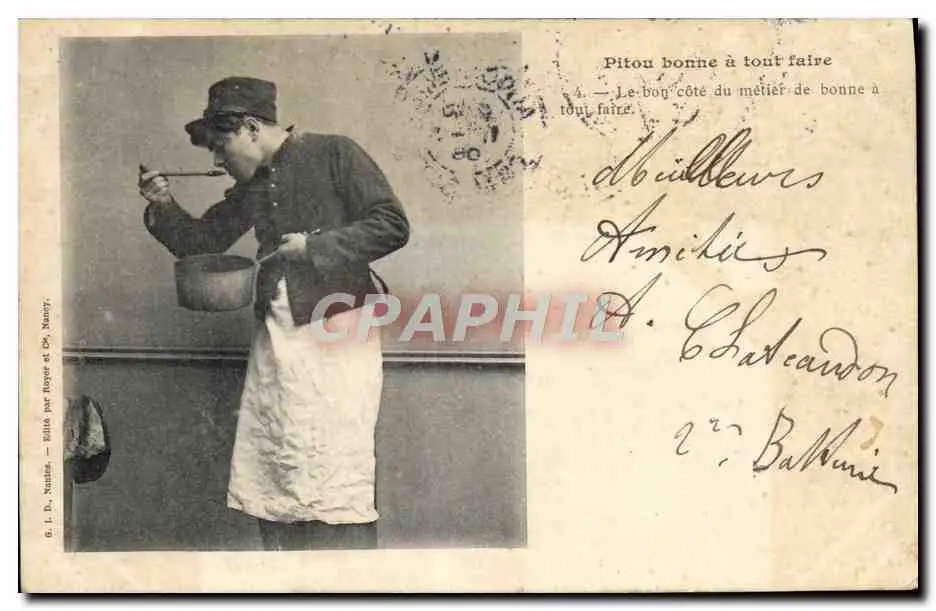 Pitou bonne à tout faire
4. — Le bon côté du métier de bonne à
tout faire.
Meilleurs
Amitiés
A. Chateaudon
2me Batterie
G. I. D., Nantes. — Edité par Royer et Cie, Nancy.
CPAPHIL